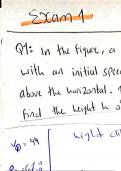 Exam 1
Q1: In the figure, a
with an initial spee
above the horizontal.
Find the height h o
V₀ = 49
hight cli